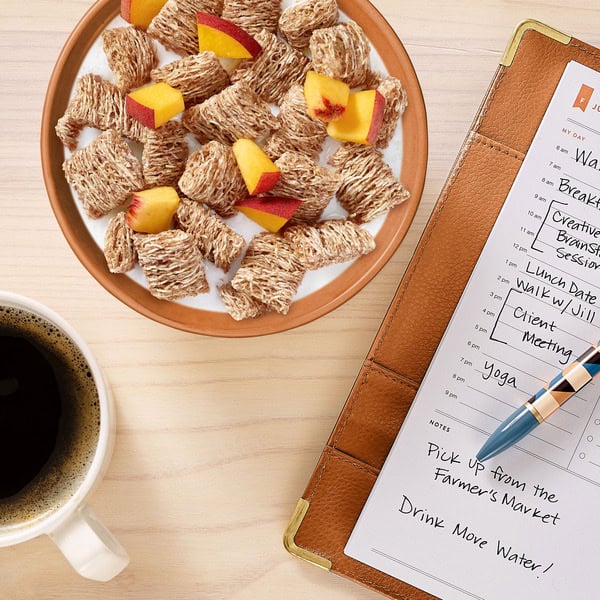 JO
MY DAY
6 am Wa
7 am
8 am Breakf
9 am Creative
10 am BrainSt
11 am Session
12 pm
1 pm Lunch Date
2 pm Walk w/ Jill
3 pm
4 pm Client
5 pm Meeting
6 pm
7 pm Yoga
8 pm
9 pm
NOTES
Pick up from the
Farmer's Market
Drink More Water!